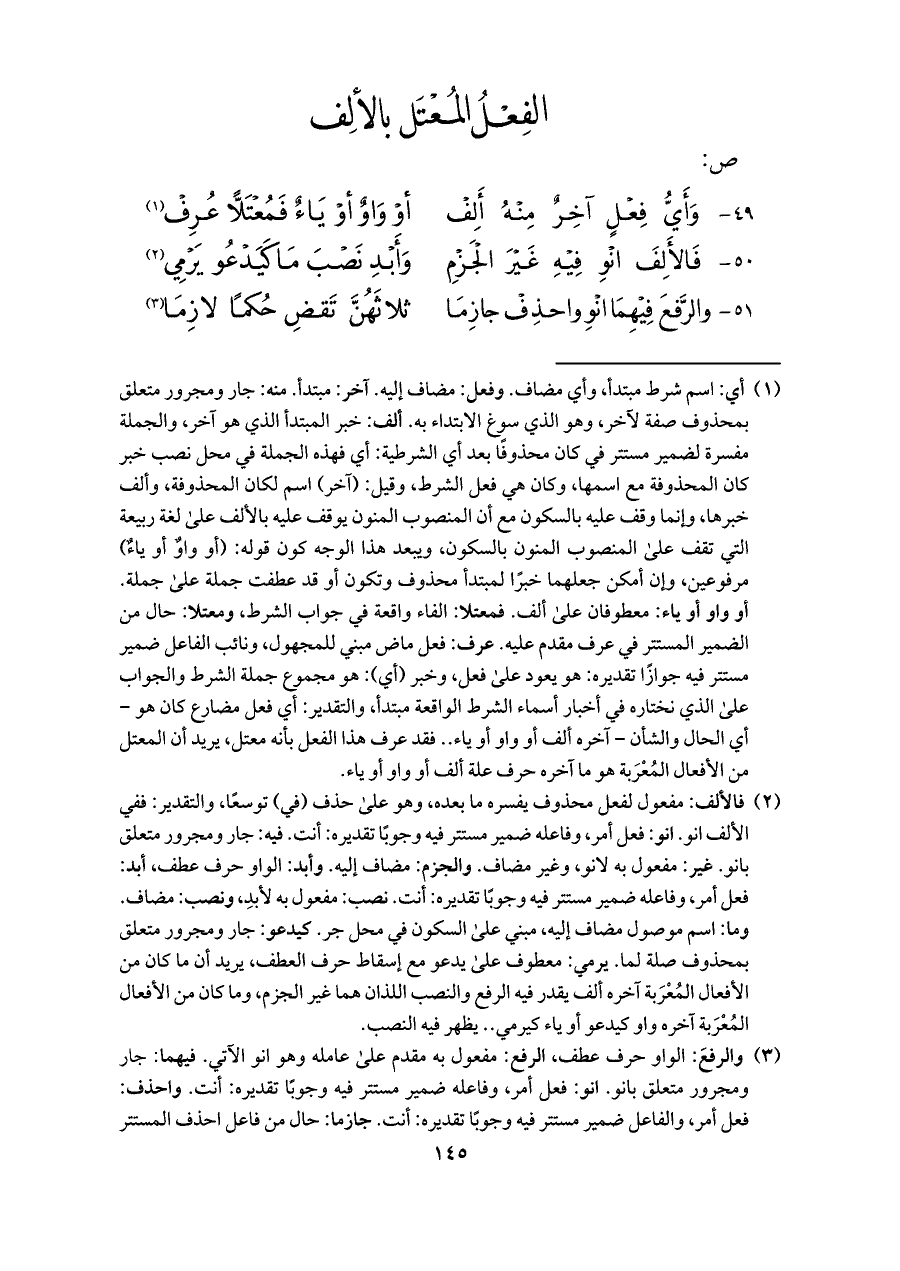 الفِعْلُ المُعْتَل بالألِف
ص:
٤٩- وَأَيُّ فِعْلٍ آخِرٌ مِنْهُ أَلِفْ أوْ وَاوٌ أوْ يَاءٌ فَمُعْتَلًّا عُرِفْ(١)
٥٠- فَالأَلِفَ انْوِ فِيْهِ غَيْرَ الْجَزْمِ وَأَبْدِ نَصْبَ مَا كَيَدْعُو يَرْمِي(٢)
٥١- والرَّفعَ فِيْهِمَا انْوِ واحذِفْ جازِمَا ثلاثَهُنَّ تَقضِ حُكمًا لازِمَا(٣)
(١) أي: اسم شرط مبتدأ، وأي مضاف. وفعل: مضاف إليه. آخر: مبتدأ. منه: جار ومجرور متعلق
بمحذوف صفة لآخر، وهو الذي سوغ الابتداء به. ألف: خبر المبتدأ الذي هو آخر، والجملة
مفسرة لضمير مستتر في كان محذوفًا بعد أي الشرطية: أي فهذه الجملة في محل نصب خبر
كان المحذوفة مع اسمها، وكان هي فعل الشرط، وقيل: (آخر) اسم لكان المحذوفة، وألف
خبرها، وإنما وقف عليه بالسكون مع أن المنصوب المنون يوقف عليه بالألف علىٰ لغة ربيعة
التي تقف علىٰ المنصوب المنون بالسكون، ويبعد هذا الوجه كون قوله: (أو واوٌ أو ياءٌ)
مرفوعين، وإن أمكن جعلهما خبرًا لمبتدأ محذوف وتكون أو قد عطفت جملة علىٰ جملة.
أو واو أو ياء: معطوفان علىٰ ألف. فمعتلا: الفاء واقعة في جواب الشرط، ومعتلا: حال من
الضمير المستتر في عرف مقدم عليه. عرف: فعل ماض مبني للمجهول، ونائب الفاعل ضمير
مستتر فيه جوازًا تقديره: هو يعود علىٰ فعل، وخبر (أي): هو مجموع جملة الشرط والجواب
علىٰ الذي نختاره في أخبار أسماء الشرط الواقعة مبتدأ، والتقدير: أي فعل مضارع كان هو –
أي الحال والشأن – آخره ألف أو واو أو ياء.. فقد عرف هذا الفعل بأنه معتل، يريد أن المعتل
من الأفعال المُعْرَبة هو ما آخره حرف علة ألف أو واو أو ياء.
(٢) فالألف: مفعول لفعل محذوف يفسره ما بعده، وهو علىٰ حذف (في) توسعًا، والتقدير: ففي
الألف انو. انو: فعل أمر، وفاعله ضمير مستتر فيه وجوبًا تقديره: أنت. فيه: جار ومجرور متعلق
بانو. غير: مفعول به لانو، وغير مضاف. والجزم: مضاف إليه. وأبد: الواو حرف عطف، أبد:
فعل أمر، وفاعله ضمير مستتر فيه وجوبًا تقديره: أنت. نصب: مفعول به لأبدِ، ونصب: مضاف.
وما: اسم موصول مضاف إليه، مبني علىٰ السكون في محل جر. كيدعو: جار ومجرور متعلق
بمحذوف صلة لما. يرمي: معطوف علىٰ يدعو مع إسقاط حرف العطف، يريد أن ما كان من
الأفعال المُعْرَبة آخره ألف يقدر فيه الرفع والنصب اللذان هما غير الجزم، وما كان من الأفعال
المُعْرَبة آخره واو كيدعو أو ياء كيرمي.. يظهر فيه النصب.
(٣) والرفعَ: الواو حرف عطف، الرفع: مفعول به مقدم علىٰ عامله وهو انو الآتي. فيهما: جار
ومجرور متعلق بانو. انو: فعل أمر، وفاعله ضمير مستتر فيه وجوبًا تقديره: أنت. واحذف:
فعل أمر، والفاعل ضمير مستتر فيه وجوبًا تقديره: أنت. جازما: حال من فاعل احذف المستتر
١٤٥